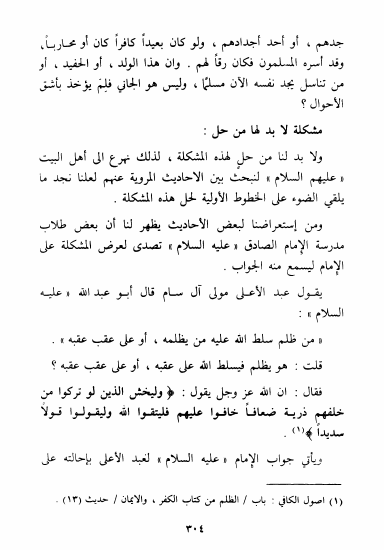 جدهم ، أو أحد أجدادهم ، ولو كان بعيداً كافراً كان أو محارباً،
وقد أسره المسلمون فكان رقاً لهم . وان هذا الولد ، أو الحفيد ، أو
من تناسل يجد نفسه الآن مسلماً ، وليس هو الجاني فلِمَ يؤخذ بأشق
الأحوال ؟
مشكلة لا بد لها من حل :
ولا بد لنا من حل لهذه المشكلة ، لذلك نهرع الى أهل البيت
« عليهم السلام » لنبحث بين الأحاديث المروية عنهم لعلنا نجد ما
يلقي الضوء على الخطوط الأولية لحل هذه المشكلة .
ومن إستعراضنا لبعض الأحاديث يظهر لنا أن بعض طلاب
مدرسة الإمام الصادق « عليه السلام » تصدى لعرض المشكلة على
الإمام ليسمع منه الجواب .
يقول عبد الأعلى مولى آل سام قال أبو عبد الله « عليه
السلام » :
« من ظلم سلط الله عليه من يظلمه ، أو على عقب عقبه » .
قلت : هو يظلم فيسلط الله على عقبه ، أو على عقب عقبه ؟
فقال : ان الله عز وجل يقول : ﴿ وليخش الذين لو تركوا من
خلفهم ذرية ضعافاً خافوا عليهم فليتقوا الله وليقولوا قولاً
سديداً ﴾(١) .
ويأتي جواب الإمام « عليه السلام » لعبد الأعلى بإحالته على
(١) اصول الكافي : باب / الظلم من كتاب الكفر ، والايمان / حديث (١٣) .
٣٠٤